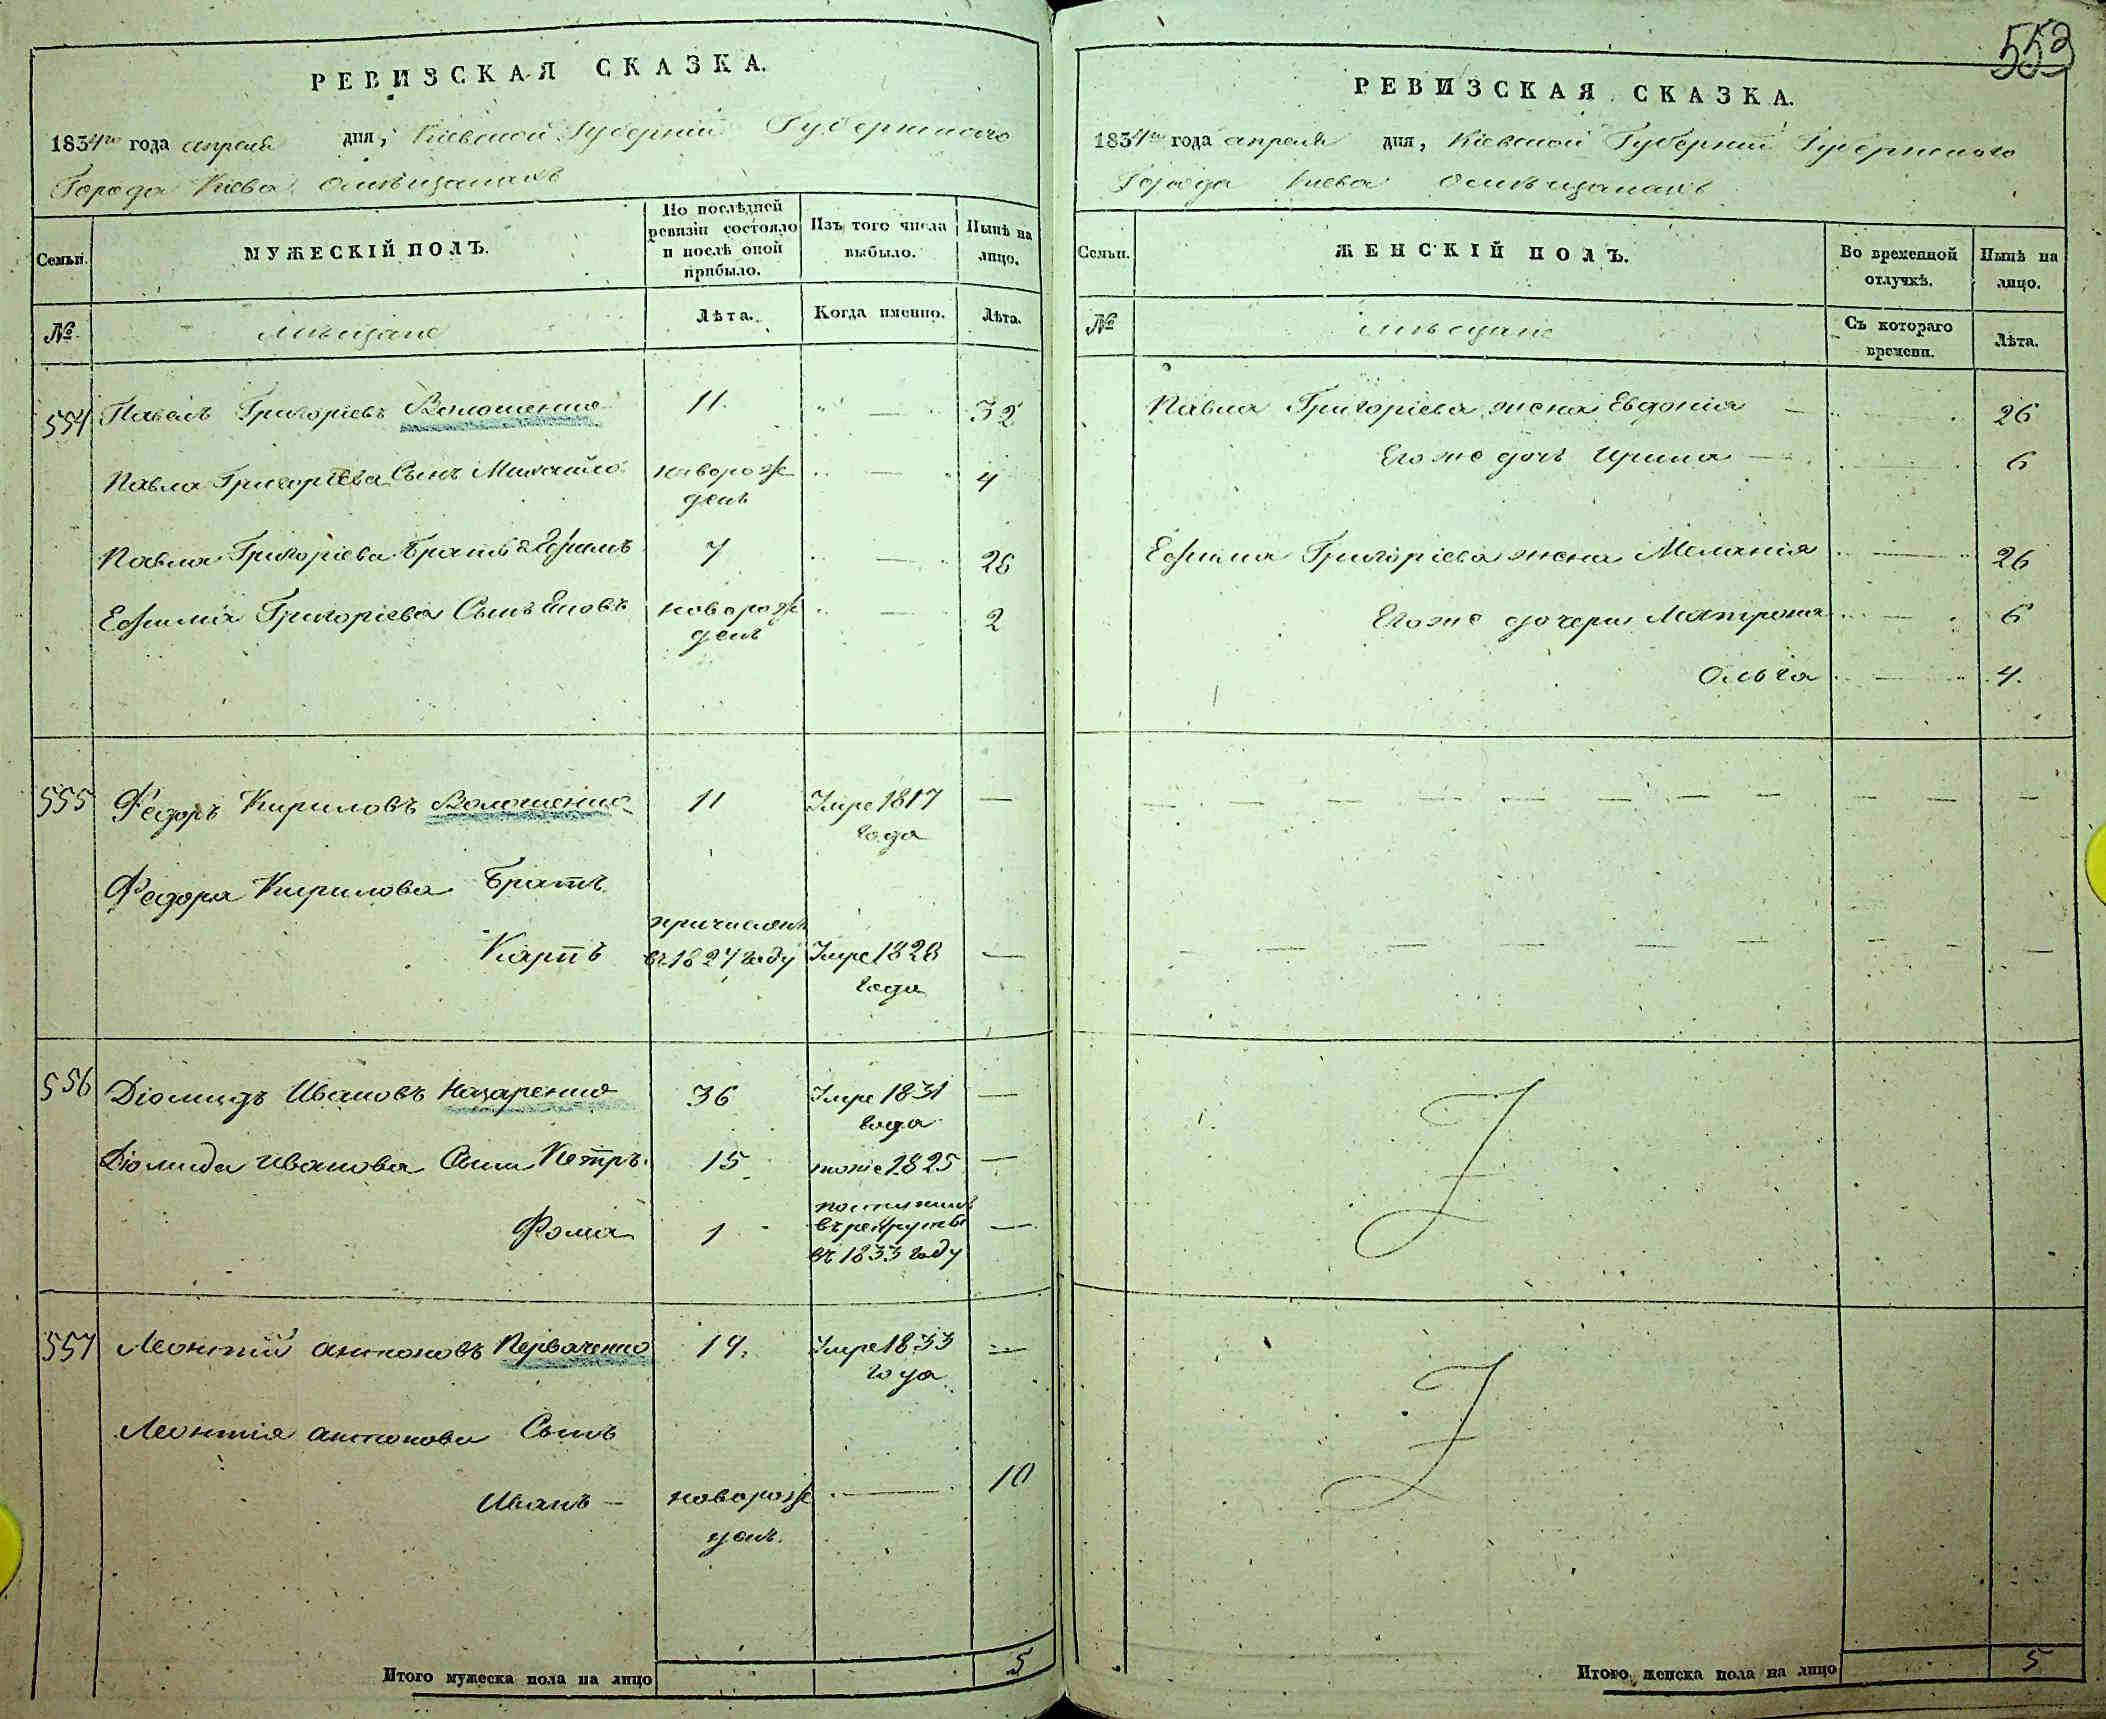 РЕВИЗСКАЯ СКАЗКА.
1834го года апреля дня, Кіевской Губерніи Губернскаго
Города Кіева Омѣщанахъ
Семьи.
МУЖЕСКІЙ ПОЛЪ.
По послѣдней ревизіи состояло и послѣ оной прибыло.
Изъ того числа выбыло.
Нынѣ на лицо.
№
мѣщане
Лѣта.
Когда именно.
Лѣта.
554 Павелъ Григоріевъ Волошенко 11. 32
Павла Григоріева Сынъ Михайло новорож 4
денъ
Павла Григоріева Братъ Ефимъ 7 28
Ефима Григоріева Сынъ Яковъ новорож 2
денъ
555 Федоръ Кириловъ Волошенко 11 Умре 1817 —
года
Федора Кирилова Братъ
причисленъ
Карпъ въ 1827 году Умре 1828 —
года
556 Діомидъ Ивановъ Назаренко 36 Умре 1831 —
года
Діомида Иванова Сыны Петръ. 15 тоже 1825 —
поступилъ
Фома 1 въ рекруты —
въ 1833 году
557 Леонтій Антоновъ Перваченко 19. Умре 1833 —
года
Леонтія Антонова Сынъ
Иванъ — новорож — 10
денъ.
Итого мужеска пола на лицо 5
553
РЕВИЗСКАЯ СКАЗКА.
1834го года апреля дня, Кіевской Губерніи Губернскаго
Города Кіева Омѣщанахъ
Семьи.
ЖЕНСКІЙ ПОЛЪ.
Во временной отлучкѣ.
Нынѣ на лицо.
№
мѣщане
Съ котораго времени.
Лѣта.
Павла Григоріева жена Евдокія — 26
Егоже дочь Ирина — 6
Ефима Григоріева жена Меланія — 26
Егоже дочери Матрона — 6
Ольга — 4.
Итого женска пола на лицо 5